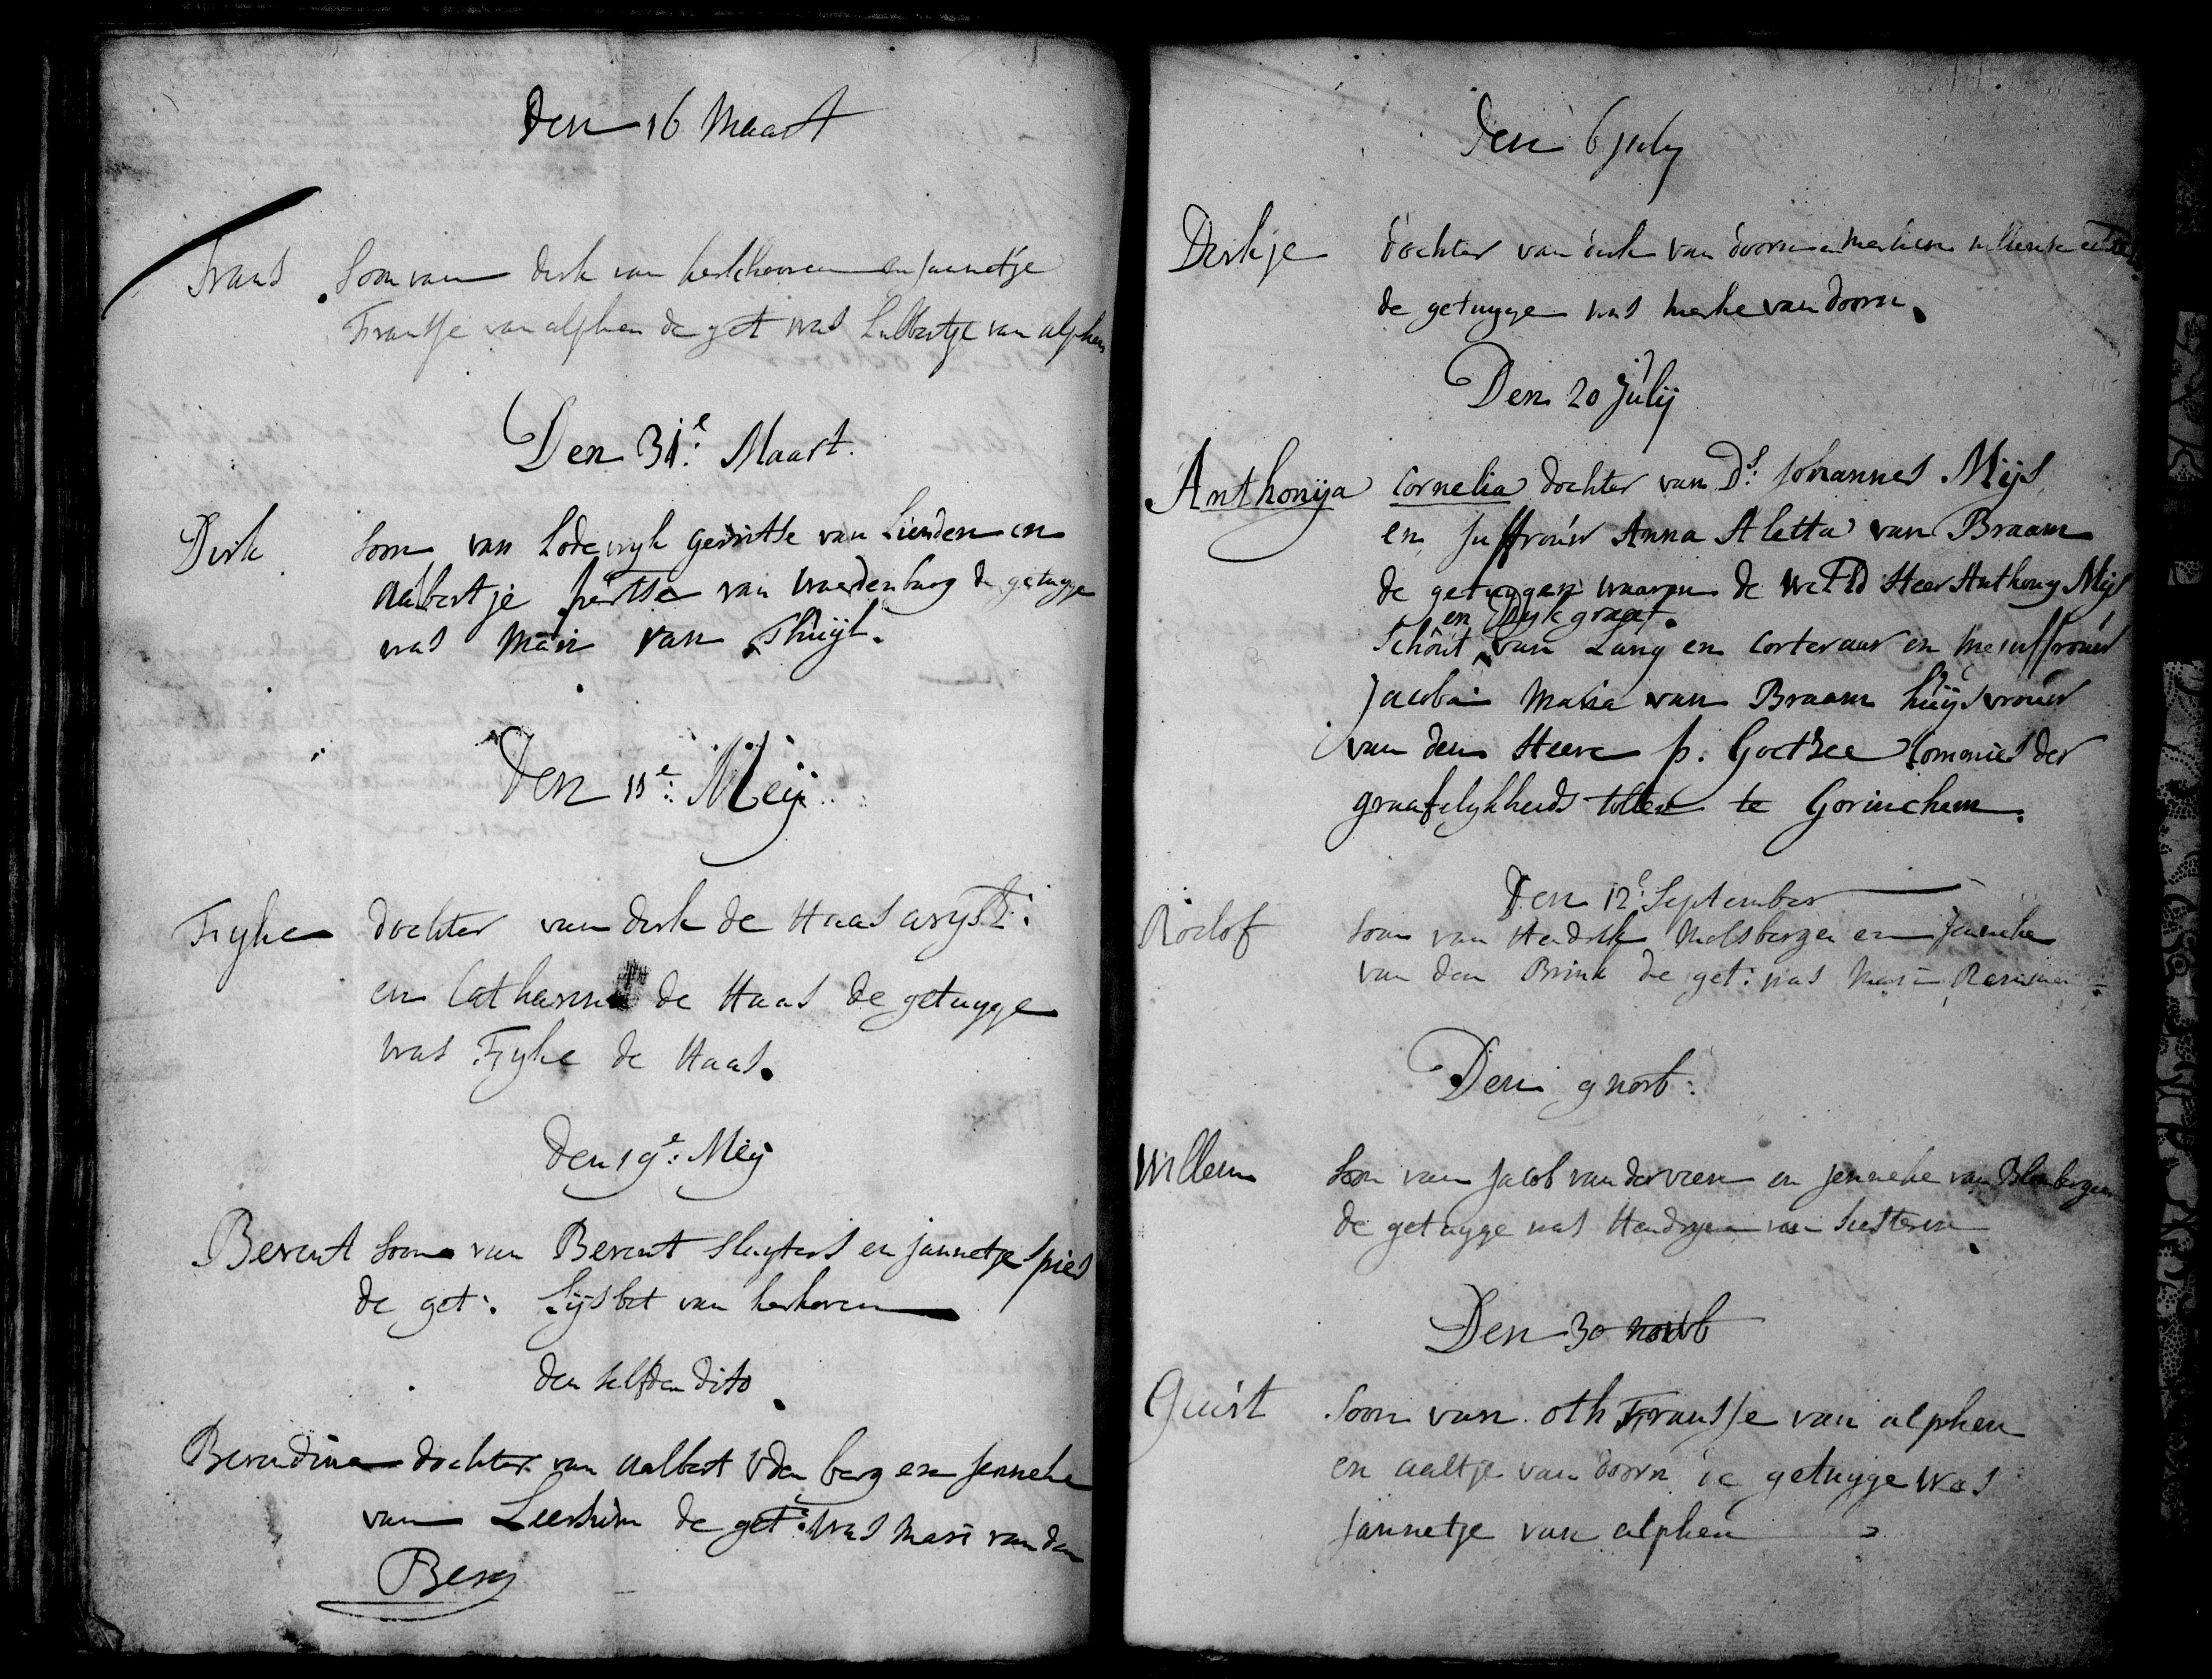 Den 16 Maart
Frans Soon van Dirk van kerkhoven en Jannetje
Franse van alphen de get was Lubbertje van alphen
Den 31e: Maart.
Dirk Soon van Lodewyk Gerritse van Lienden en
Aalbertje van Waerdenburg de getugge
was Mari van Thuijl.
Den 11e: Meij
Fyke dochter van dirk de Haas
en Catharina de Haas de getugge
was Fyke de Haas.
Den 19e: Meij
Berent Soon van Berent Sluyters en jannetje Spies
de get: Lijsbet van kerkoven
den selfden dito
Berendina dochter van aalbert vden berg en Jenneke
van Leersum de get: was Mari van den
Berg
Den 6 july
Dirkje dochter van dirk van doorn
de getugge was merke van doorn.
Den 20 Julij
Anthonija Cornelia dochter van Ds: Johannes Mijs
en Juffrouw Anna Aletta van Braam
de getuggen waaren de Heer Anthony Mijs
en Dijkgraaf.
Schout van Lang en Corteraar en Mejuffrouw
Jacoba Maria van Braam huijsvrouw
van den Heere p. Goethee Commies der
graafelykheids tollen te Gorinchem.
Den 12e: September
Roelof Soon van Hendrik Molsbergen en Jenneke
van den Brink de get: was Mari
Den 9 novb:
Willem Soon van Jacob van der veen en jenneke van Blanbergen
de getugge was van
Den 30 novb
Guist Soon van oth Fransse van alphen
en aaltje van doorn de getugge was
Jannetje van alphen